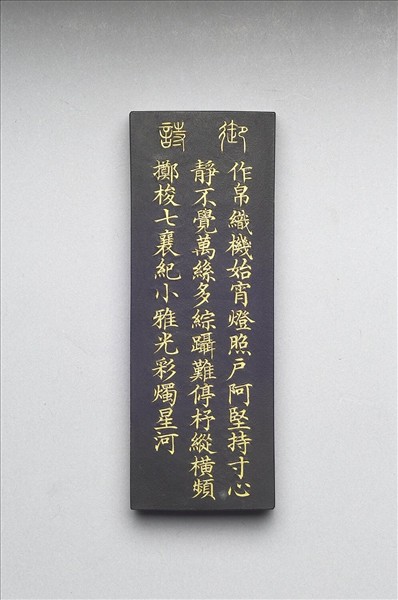 御詩
作帛織機始宵燈照戶阿堅持寸心
靜不覺萬絲多綜躡難停杼縱橫頻
擲梭七襄紀小雅光彩燭星河